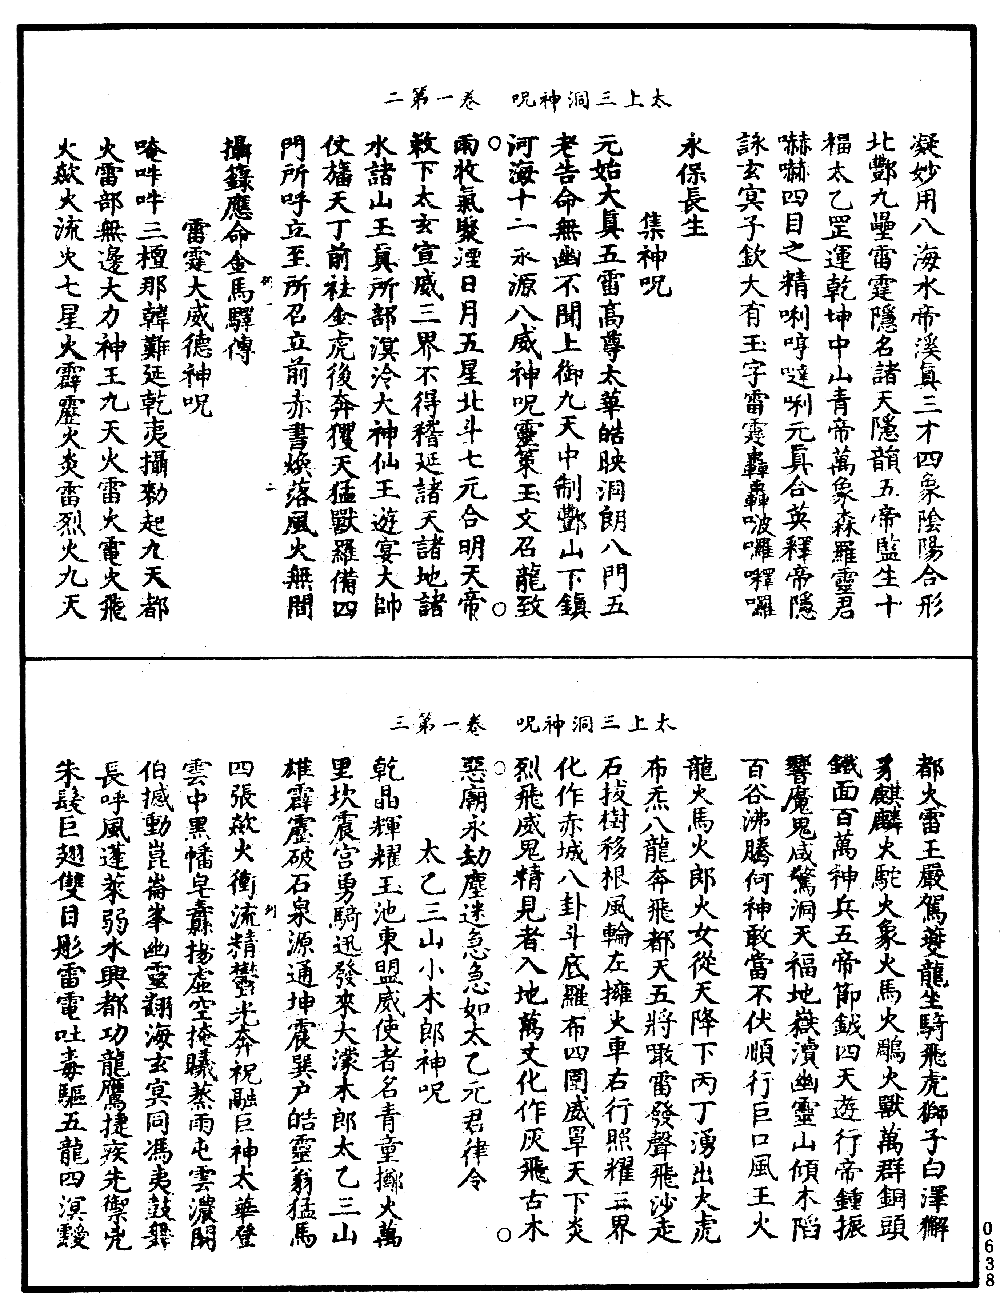 太上三洞神呪　卷一第二
凝妙用八海水帝溪眞三才四象陰陽合形
北酆九壘雷霆隱名諸天隱韻五帝監生十
楅太乙罡運乾坤中山青帝萬象森羅靈君
嚇嚇四目之精唎哼噠唎元眞合英釋帝隱
詠玄冥子欽大有玉字雷霆轟轟啵囉嚩囉
永保長生
集神呪
元始大眞五雷高尊太華皓映洞朗八門五
老告命無幽不聞上御九天中制酆山下鎮
河海十二永源八威神呪靈策玉文召龍致
雨收氣聚湮日月五星北斗七元合明天帝
敕下太玄宣威三界不得稽延諸天諸地諸
水諸山王眞所部溟泠大神仙王遊宴大帥
仗旛天丁前袪金虎後奔玃天猛獸羅備四
門所呼立至所召立前赤書煥落風火無間
攝籙應命金馬驛傳
雷霆大威德神呪
唵吽吽三檀那韓難延乾夷攝勑起九天都
火雷部無邊大力神王九天火雷火電火飛
火歘火流火七星火霹靂火炎雷烈火九天
太上三洞神呪　卷一第三
都火雷王嚴駕夔龍坐騎飛虎獅子白澤獬
豸麒麟火駝火象火馬火鵰火獸萬群銅頭
鐵面百萬神兵五帝節鉞四天遊行帝鍾振
響魔鬼咸驚洞天福地嶽瀆幽靈山傾木陷
百谷沸騰何神敢當不伏順行巨口風王火
龍火馬火郎火女從天降下丙丁湧出火虎
布炁八龍奔飛都天五將噉雷發聲飛沙走
石拔樹移根風輪左擁火車右行照耀三界
化作赤城八卦斗底羅布四圍威罩天下炎
烈飛威鬼精見者入地萬丈化作灰飛古木
惡廟永劫塵迷急急如太乙元君律令
太乙三山小木郎神呪
乾晶輝耀玉池東盟威使者名青童擲火萬
里坎震宮勇騎迅發來大濛木郎太乙三山
雄霹靂破石泉源通坤震巽戶皓靈翁猛馬
四張歘火衝流精鬱光奔祝融巨神太華登
雲中黑幡皂纛揚虛空掩曦蒸雨屯雲濃閼
伯撼動崑崙峯幽靈翻海玄冥同馮夷鼓舞
長呼風蓬萊弱水興都功龍鷹捷疾先禦兇
朱髮巨翅雙目彤雷電吐毒驅五龍四溟靉
0638